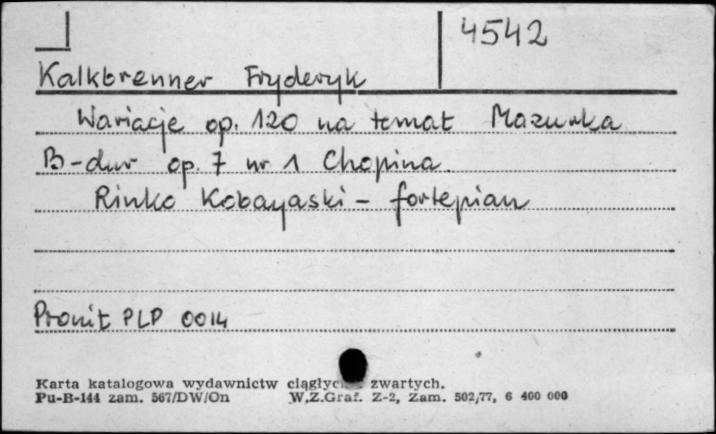 4542
Kalkbrenner Fryderyk
Wariacje op. 120 na temat Mazurka
B-dur op. 7 nr 1 Chopina
Rinko Kobayaski - fortepian
Pronit PLP 0014
Karta katalogowa wydawnictw zwartych.
Pu-B-144 zam. 567/DW/On W.Z.Graf. Z-2, Zam. 502/77, 6 400 000